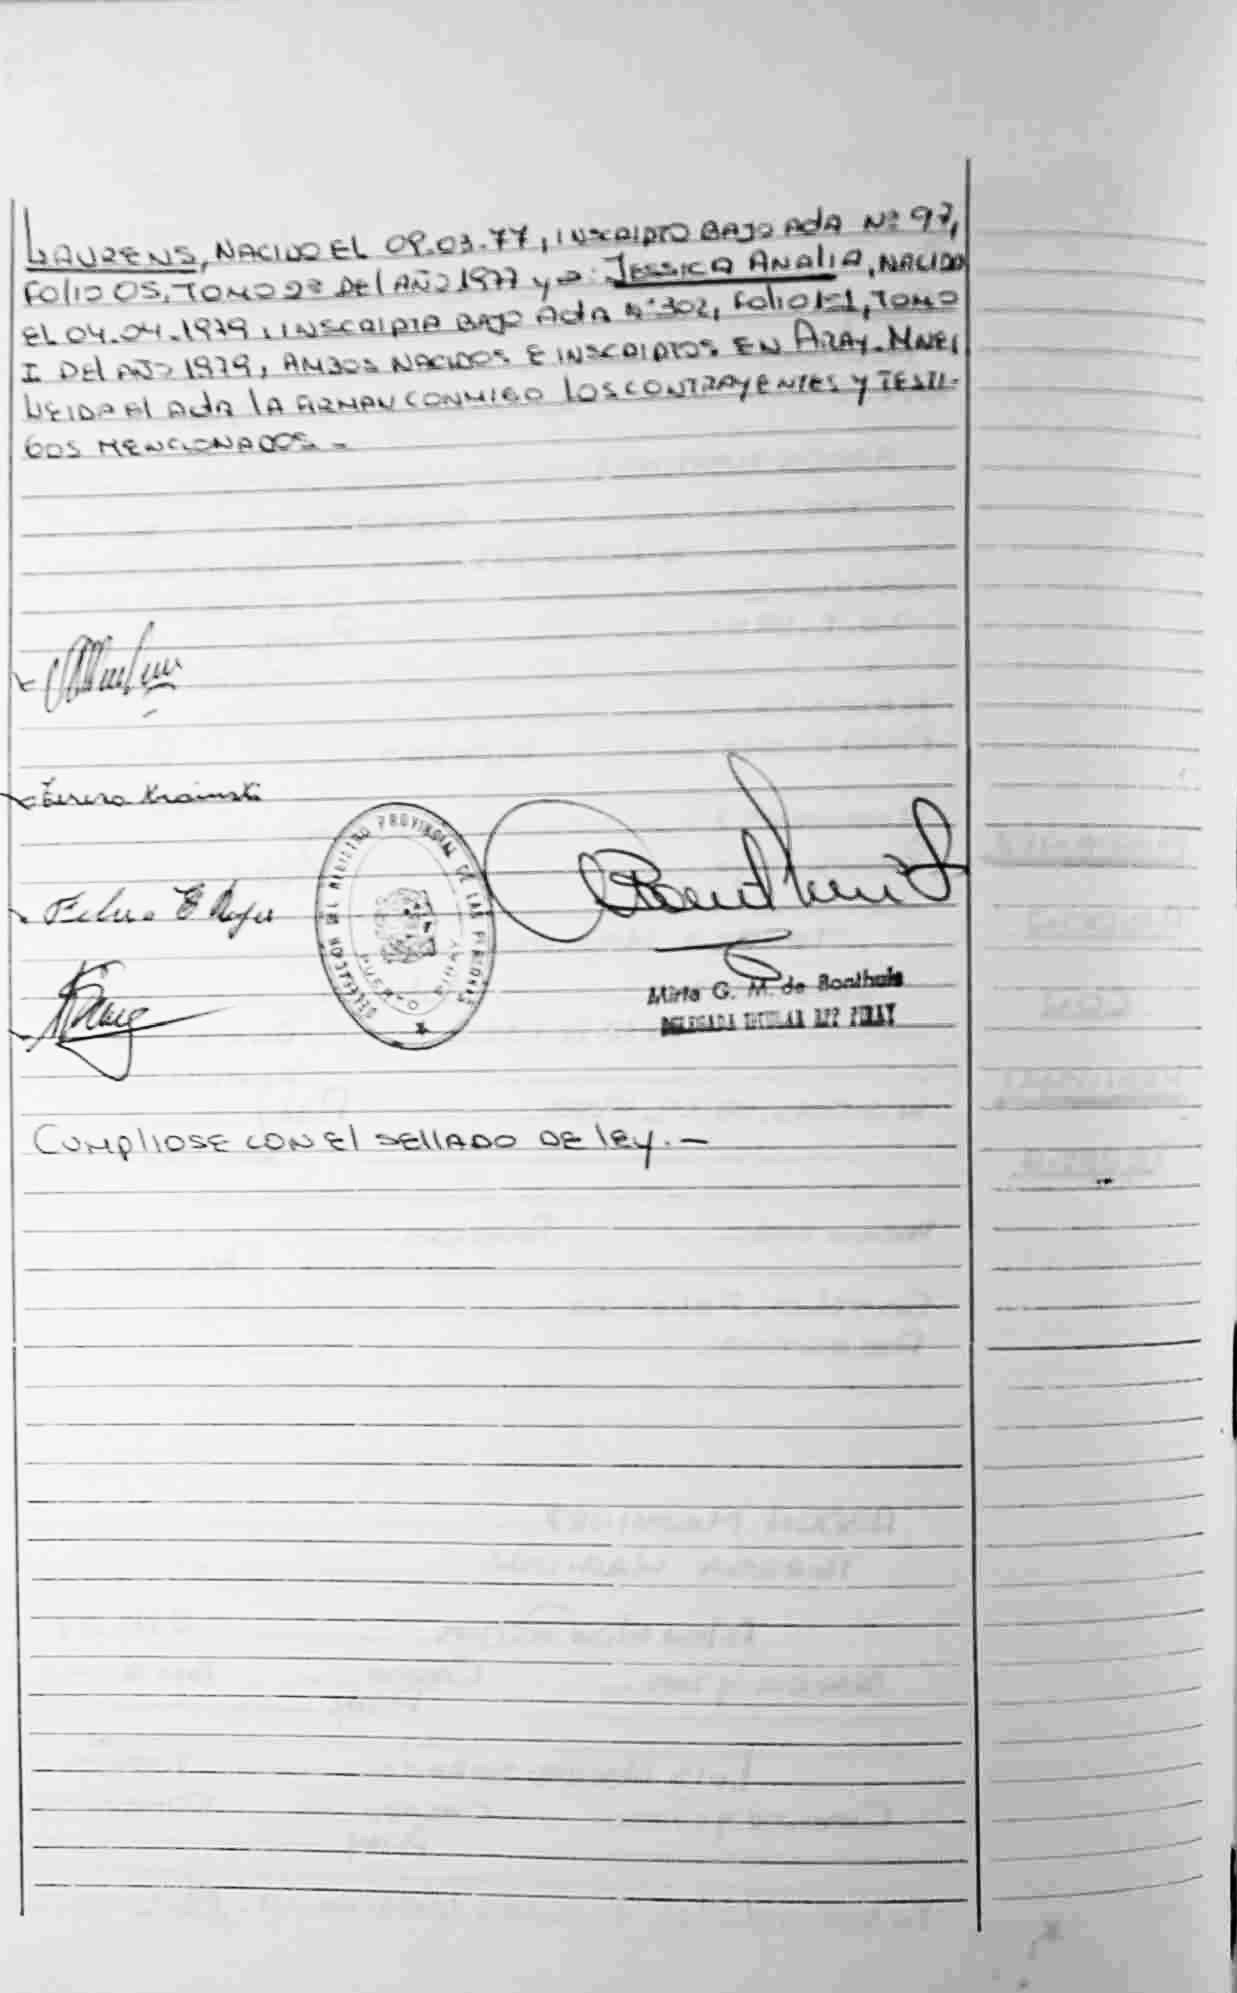 LAURENS, NACIDO EL 09.03.77, INSCRIPTO BAJO Acta Nº 97,
Folio 05, Tomo 2º DEl AÑO 1977 y a: JESSICA ANALIA, NACIDA
El 04.04.1979, INSCRIPTA BAJO Acta Nº 302, Folio 151, TOMO
I DEl AÑO 1979, AMBOS NACIDOS E INSCRIPTOS EN
LEIDA El Acta lA FIRMAN CONMIGO LOS CONTRAYENTES Y TESTI-
GOS MENCIONADOS.-
Teresa Krainski
DELEGACION DEL REGISTRO PROVINCIAL DE LAS PERSONAS
PUERTO PIRAY
Mirta G. M. de Bonthuis
DELEGADA TITULAR RPP PIRAY
CUMPLIOSE CON El SEllADO DE lEy.-